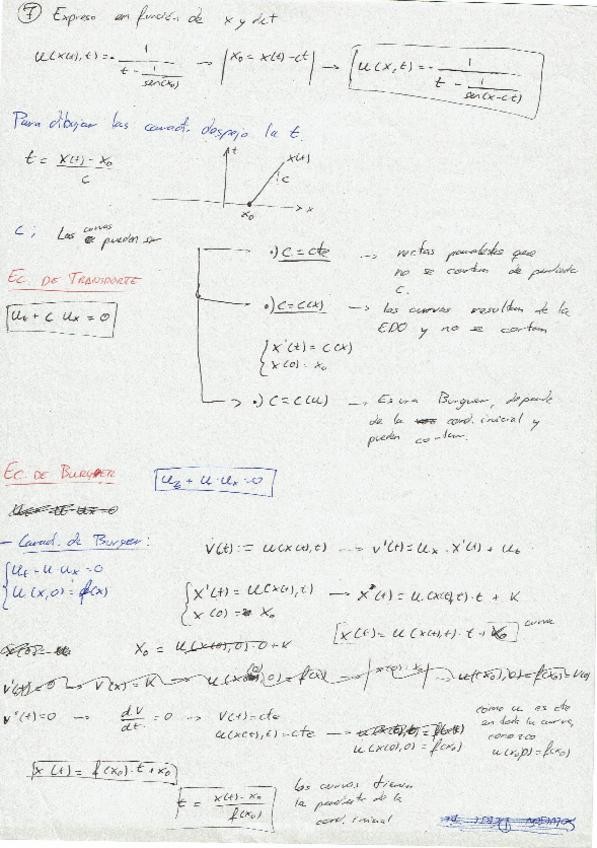 7 Expreso en función de x y de t
u(x(t),t) = - 1 / (t - 1/sen(x0)) → | x0 = x(t) - ct | → u(x,t) = - 1 / (t - 1/sen(x-ct))
Para dibujar las caract. despejo la t.
t = (x(t) - x0) / c
t
x(t)
c
x0
x
c; Las curvas pueden ser
·) c = cte → rectas paralelas que
no se cortan de pendiente
c.
EC. DE TRANSPORTE
ut + c ux = 0
·) c = c(x) → las curvas resultan de la
EDO y no se cortan
{ x'(t) = c(x)
x(0) = x0
→ ·) c = c(u) → Es una Burguer, depende
de la cond. inicial y
pueden cortan.
EC. DE BURGER
ut + u·ux = 0
- Caract. de Burger:
v(t) := u(x(t),t) → v'(t) = ux · x'(t) + ut
{ ut - u ux = 0
u(x,0) = f(x)
{ x'(t) = u(x(t),t) → x(t) = u(x(t),t)·t + K
x(0) = x0
x(t) = u(x(t),t)·t + x0 curva
x0 = u(x(0),0)·0 + K
v'(t) = 0 → v(t) = K → u(x(0),0) = f(x)
v'(t) = 0 → dv/dt = 0 → v(t) = cte
u(x(t),t) = cte →
u(x(0),0) = f(x0)
como u es cte
en toda la curva,
conozco
u(x0,0) = f(x0)
x(t) = f(x0)·t + x0
t = (x(t) - x0) / f(x0)
las curvas tienen
la pendiente de la
cond. inicial